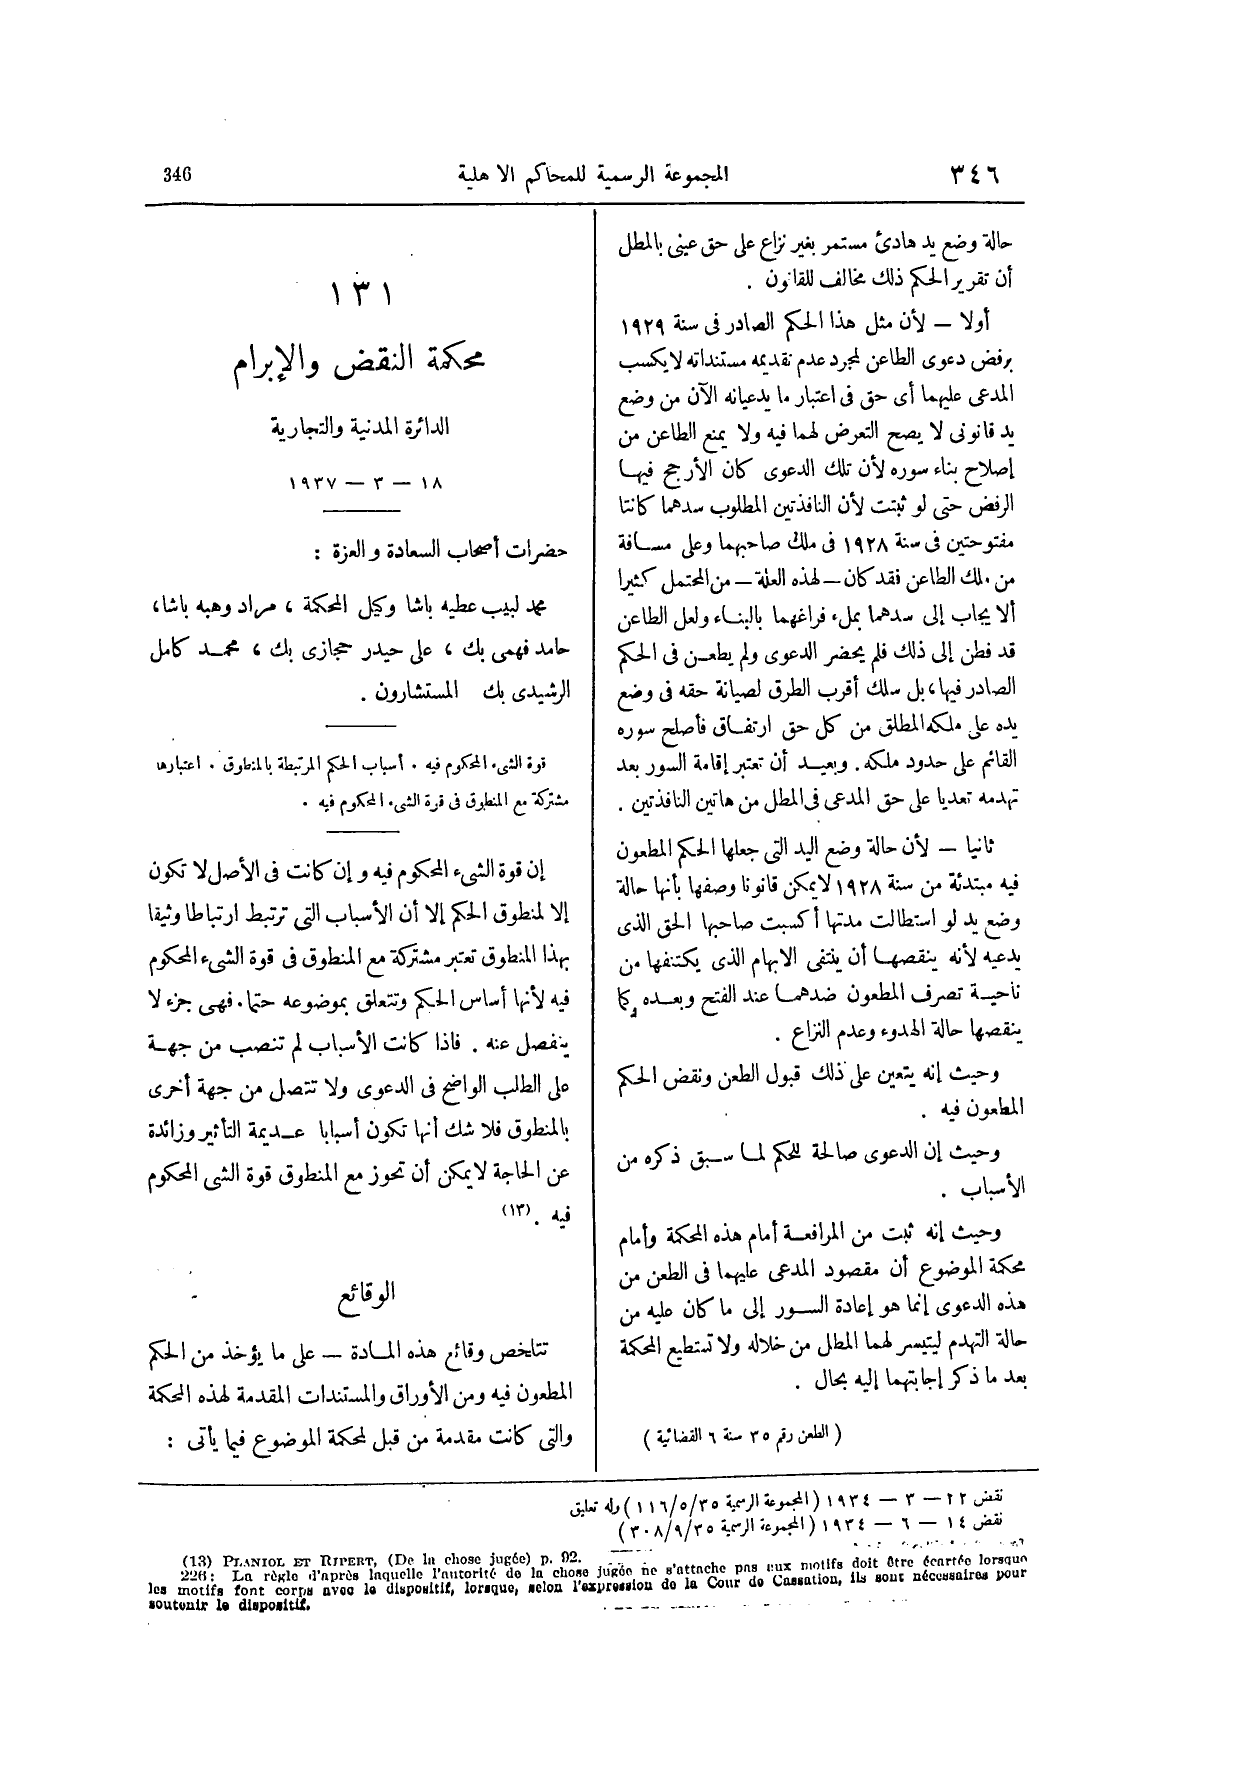 ٣٤٦ المجموعة الرسمية للمحاكم الاهلية 346
حالة وضع يد هادئ مستمر بغير نزاع على حق عينى بالمطل
أن تقرير الحكم ذلك مخالف للقانون .
أولا — لأن مثل هذا الحكم الصادر فى سنة ١٩٢٩
برفض دعوى الطاعن لمجرد عدم تقديمه مستنداته لا يكسب
المدعى عليهما أى حق فى اعتبار ما يدعيانه الآن من وضع
يد قانونى لا يصح التعرض لهما فيه ولا يمنع الطاعن من
إصلاح بناء سوره لأن تلك الدعوى كان الأرجح فيها
الرفض حتى لو ثبتت لأن النافذتين المطلوب سدهما كانتا
مفتوحتين فى سنة ١٩٢٨ فى ملك صاحبهما وعلى مسافة
من ملك الطاعن فقد كان — لهذه العلة — من المحتمل كثيرا
ألا يجاب إلى سدهما بملء فراغهما بالبناء ولعل الطاعن
قد فطن إلى ذلك فلم يحضر الدعوى ولم يطعن فى الحكم
الصادر فيها، بل سلك أقرب الطرق لصيانة حقه فى وضع
يده على ملكه المطلق من كل حق ارتفاق فأصلح سوره
القائم على حدود ملكه . وبعيد أن تعتبر إقامة السور بعد
تهدمه تعديا على حق المدعى فى المطل من هاتين النافذتين .
ثانيا — لأن حالة وضع اليد التى جعلها الحكم المطعون
فيه مبتدئة من سنة ١٩٢٨ لا يمكن قانونا وصفها بأنها حالة
وضع يد لو استطالت مدتها أكسبت صاحبها الحق الذى
يدعيه لأنه ينقصها أن ينتفى الابهام الذى يكتنفها من
ناحية تصرف المطعون ضدهما عند الفتح وبعده كما
ينقصها حالة الهدوء وعدم النزاع .
وحيث إنه يتعين على ذلك قبول الطعن ونقض الحكم
المطعون فيه .
وحيث إن الدعوى صالحة للحكم لما سبق ذكره من
الأسباب .
وحيث إنه ثبت من المرافعة أمام هذه المحكمة وأمام
محكمة الموضوع أن مقصود المدعى عليهما فى الطعن من
هذه الدعوى إنما هو إعادة السور إلى ما كان عليه من
حالة التهدم ليتيسر لهما المطل من خلاله ولا تستطيع المحكمة
بعد ما ذكر إجابتهما إليه بحال .
( الطعن رقم ٣٥ سنة ٦ القضائية )
١٣١
محكمة النقض والإبرام
الدائرة المدنية والتجارية
١٨ — ٣ — ١٩٣٧
حضرات أصحاب السعادة والعزة :
محمد لبيب عطيه باشا وكيل المحكمة ، مراد وهبه باشا،
حامد فهمى بك ، على حيدر حجازى بك ، محمد كامل
الرشيدى بك المستشارون .
قوة الشىء المحكوم فيه . أسباب الحكم المرتبطة بالمنطوق . اعتبارها
مشتركة مع المنطوق فى قوة الشىء المحكوم فيه .
إن قوة الشىء المحكوم فيه وإن كانت فى الأصل لا تكون
إلا لمنطوق الحكم إلا أن الأسباب التى ترتبط ارتباطا وثيقا
بهذا المنطوق تعتبر مشتركة مع المنطوق فى قوة الشىء المحكوم
فيه لأنها أساس الحكم وتتعلق بموضوعه حتما . فهى جزء لا
ينفصل عنه . فاذا كانت الأسباب لم تنصب من جهة
على الطلب الواضح فى الدعوى ولا تتصل من جهة أخرى
بالمنطوق فلا شك أنها تكون أسبابا عديمة التأثير وزائدة
عن الحاجة لا يمكن أن تحوز مع المنطوق قوة الشى المحكوم
فيه .(١٣)
الوقائع
تتلخص وقائع هذه المادة — على ما يؤخذ من الحكم
المطعون فيه ومن الأوراق والمستندات المقدمة لهذه المحكمة
والتى كانت مقدمة من قبل لمحكمة الموضوع فيما يأتى :
نقض ٢٢ — ٣ — ١٩٣٤ ( المجموعة الرسمية ١١٦/٥/٣٥ ) وله تعليق
نقض ١٤ — ٦ — ١٩٣٤ ( المجموعة الرسمية ٣٠٨/٩/٣٥ )
(13) PLANIOL ET RIPERT, (De la chose jugée) p. 92.
226: La règle d'après laquelle l'autorité de la chose jugée ne s'attache pas aux motifs doit être écartée lorsque
les motifs font corps avec le dispositif, lorsque, selon l'expression de la Cour de Cassation, ils sont nécessaires pour
soutenir le dispositif.